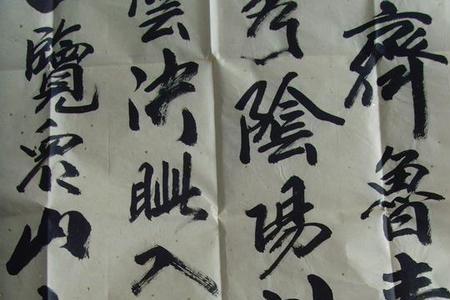 齊魯青
秀陰陽
雲決眦入
覽衆山